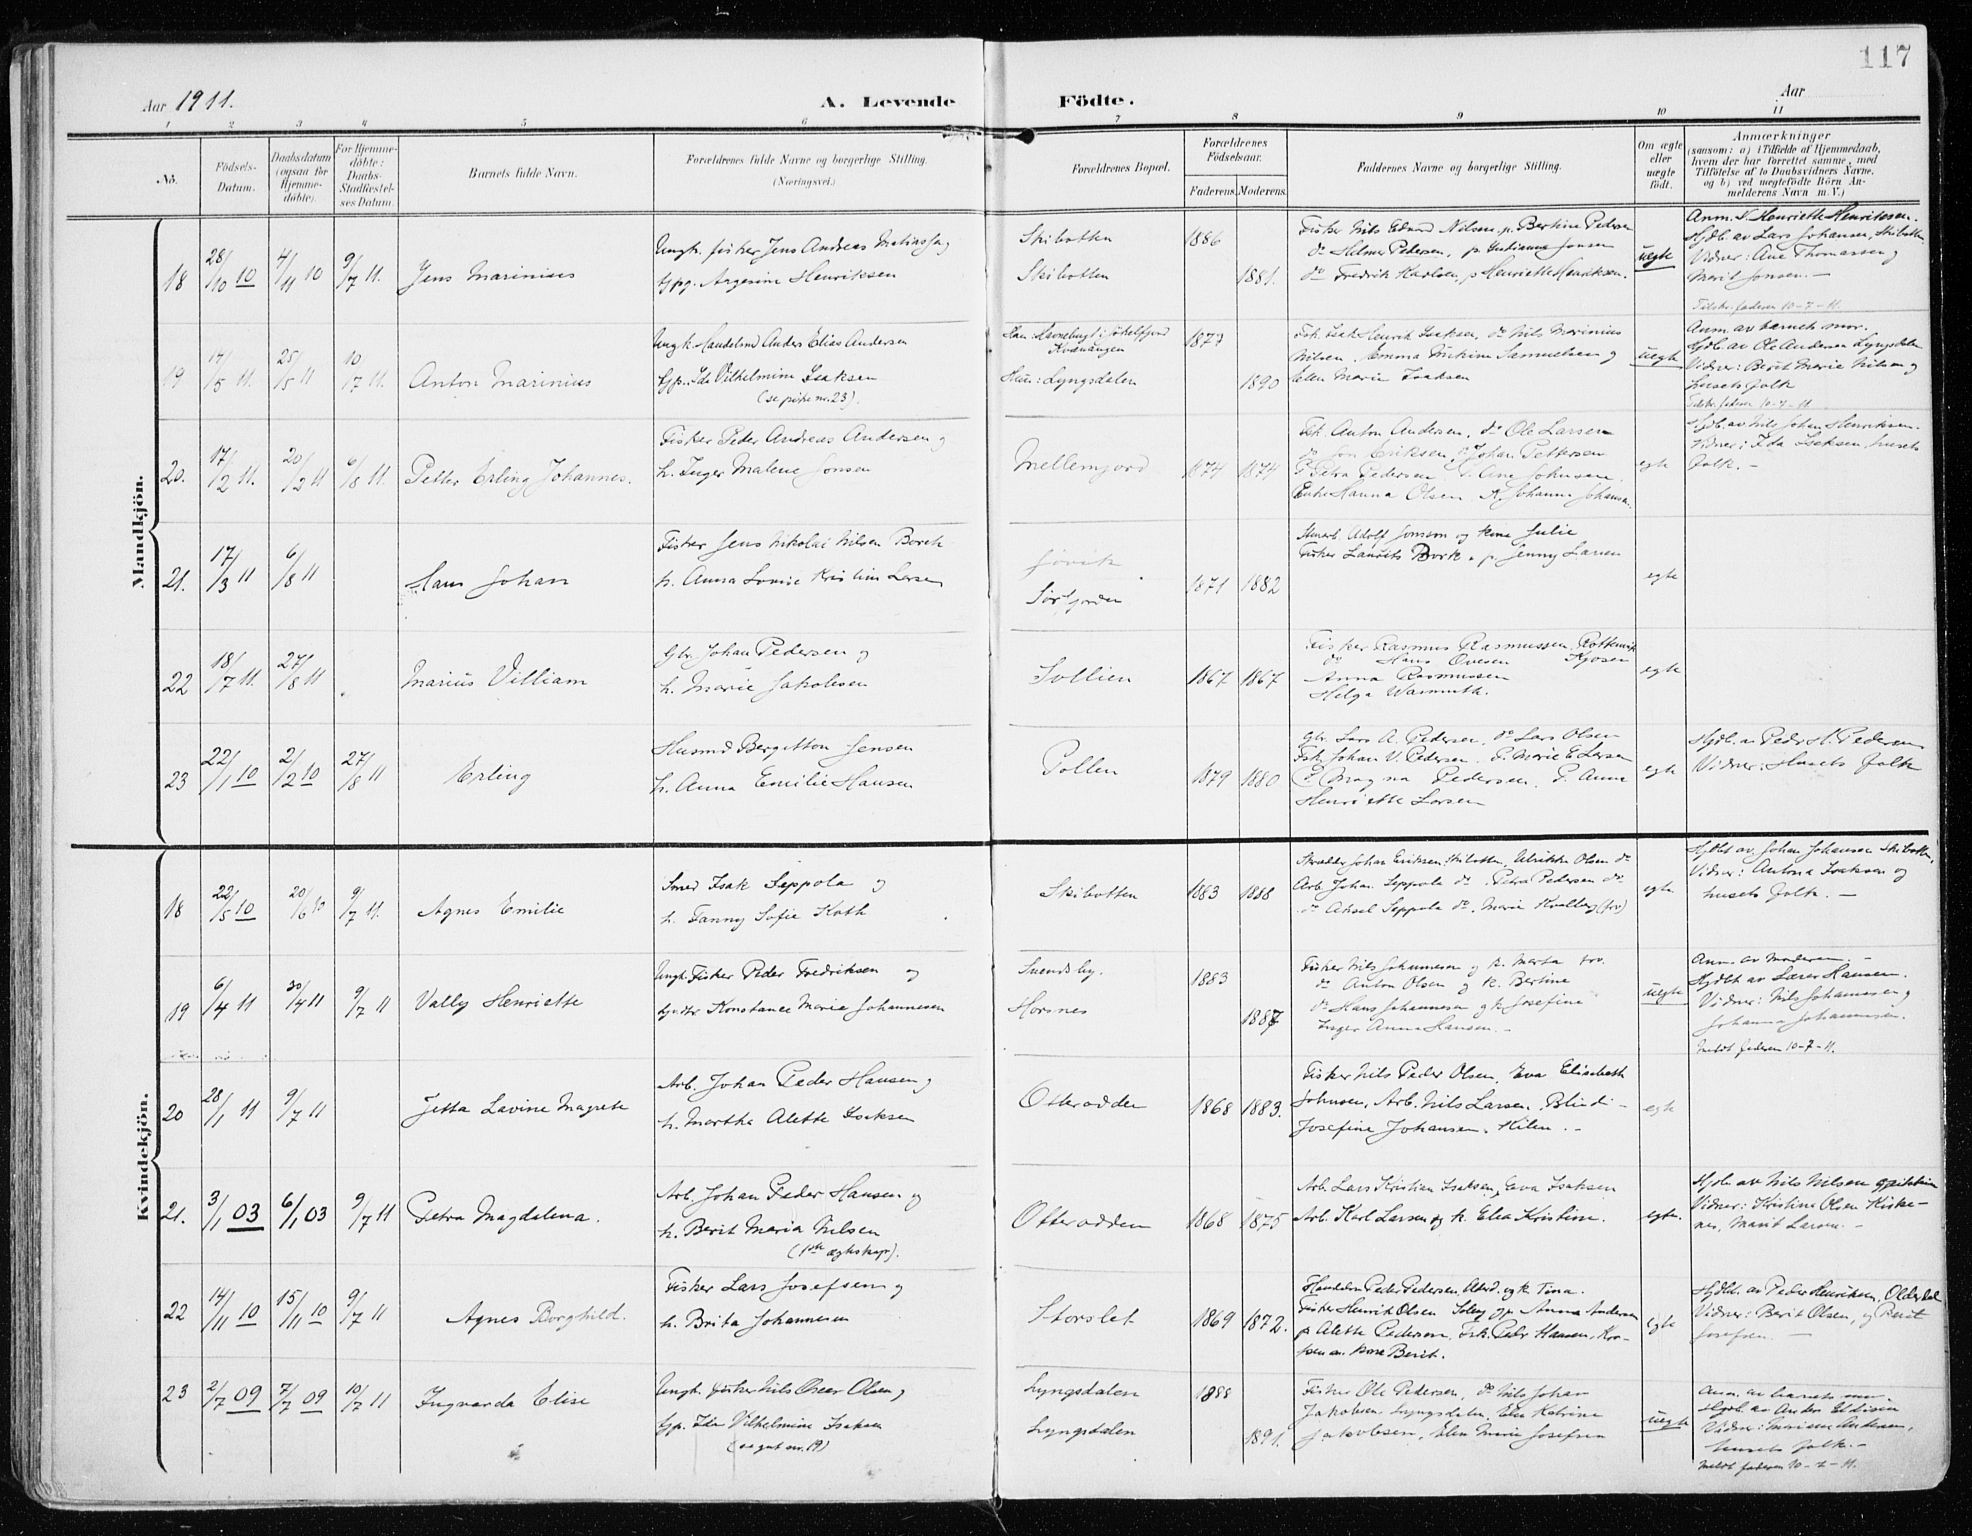 117
Aar 1911.
A. Levende
Födte.
Aar
1 2 3 4 5 6 7 8 9 10 11
No.
Födsels-
Datum.
Daabsdatum
(ogsaa for
Hjemme-
döbte).
For Hjemme-
döbte:
Daabs-
Stadfæstel-
ses Datum.
Barnets fulde Navn.
Forældrenes fulde Navne og borgerlige Stilling.
(Næringsvei.)
Forældrenes Bopæl.
Forældrenes
Födselsaar.
Faderens. Moderens.
Faddernes Navne og borgerlige Stilling.
Om ægte
eller
uægte
födt.
Anmærkninger
(saasom: a) i Tilfælde af Hjemmedaab,
hvem der har forrettet samme, med
Tilföielse af to Daabsvidners Navne,
og b) ved uægtefödte Börn An-
melderens Navn m. V.)
Mandkjön.
18 28/10 10 4/11 10 9/7 11. Jens Marinius
Ungk. fisker Jens Andreas Mathias og
Gpg. Angesine Henriksen
Skibotten 1886
Skibotten 1881.
Fisker Nils Edvard Nilsen, p. Bertine Pedersen
do Helmer Pedersen, p. Jonsen
do Fredrik Karlsen, p Henriette Henriksen.
uegte
Anm. v. Henriette Henriksen.
Hjdb. av Lars Johansen, Skibotten
Vidner: Ane Thomassen og
Marit Jonsen. —
Tilskr. faderen 10-7-11.
19 17/5 11. 25/5 11 10/7 11. Anton Marinius
Ungk. Handelsmd Anders Elias Andersen
Gp. Ida Vilhelmine Isaksen
(se pike nr. 23).
Han: Havnebugt i Jökelfjord
Kvænangen 1877
Hun: Lyngsdalen 1890
Fsk. Isak Henrik Isaksen, do Nils Marinius
Nilsen, Emma Samuelsen og
Ellen Marie Isaksen
uegte
Anm. av barnets mor.
Hjdb. av Ole Andersen Lyngsdalen
Vidner: Berit Marie Nilsen og
husets folk
Tilskr. faderen 10-7-11
20. 17/2 11. 20/2 11 6/8 11. Petter Erling Johannes.
Fisker Peder Andreas Andersen og
h. Inger Malene Jonsen
Mellemjord 1874 1874
Fsk. Anton Andersen, do Ole Larsen
do Jon Eriksen, do Johan Pettersen
P. Petra Pedersen, P. Ane Johnsen
Enke Hanna Olsen, Johanne Johansen
egte
Hjdb. av Nils Johan Henriksen.
Vidner: Ida Isaksen, husets
folk. —
21. 17/3 11 6/8 11 Hans Johan
Fisker Jens Nikolai Nilsen Borch
h. Anna Lovise Kristine Larsen
Jövik
Sörfjorden 1871 1882
Adolf Jonsson og kone Julie
Fisker Laurits Bork, p. Jenny Larsen
egte
22 18/7 11. 27/8 11 Marius Villiam
Gbr. Johan Pedersen og
h. Marie Jakobsen
Sollien 1867 1867
Fisker Rasmus Rasmussen, Rottenvik
do Hans Ovesen Kjosen
Anna Rasmussen
Helga Warmuth.
egte
23 22/1 10 2/2 10 27/8 11 Erling
Husmd Bergitton Jensen
h. Anna Emilie Hansen
Pollen 1879 1880
Gbr. Lars A. Pedersen, do Lars Olsen
Fsk. Johan V. Pedersen, P. Marie E Larsen
P. Magna Pedersen, P. Anna
Henriette Larsen
egte
Hjdb. av Peder H. Pedersen
Vidner: Husets folk
Kvindekjön.
18 22/5 10 20/6 10 9/7 11. Agnes Emilie
Smed Isak Seppola og
h. Fanny Sofie Koth
Skibotten 1883 1888
Skrædder Johan Eriksen Skibotten, Ulrikke Olsen do
Arb. Johan Seppola do, Petra Pedersen do
do Aksel Seppola do, Marie Kvalberg (fov)
egte
Hjdbt av Johan Johansen Skibotten,
Vidner: Antona Isaksen og
husets folk. —
19 6/4 11 30/4 11 9/7 11 Vally Henriette
Ungk. Fisker Peder Fredriksen og
Gdr. Konstance Marie Johannesen
Svendsby. 1883
Horsnes 1887
Fisker Nils Johannesen og k. Marta
do Anton Olsen og k. Bertine
do Hans Johannesen og k Josefine
Inger Anna Hansen. —
uegte
Anm. av moderen. —
Hjdbt av Lærer Hansen.
Vidner: Nils Johannesen og
Johanna Johannesen.
Meldt faderen 10-7-11.
20 28/1 11 9/7 11 Jetta Lavine Magrete
Arb. Johan Peder Hansen og
h. Martha Alette Isaksen
Otteradden 1868 1883.
Fisker Nils Peder Olsen, Eva Elisabeth
Johnsen, Arb. Nils Larsen, Blindi —
Josefine Johansen, Kilen. —
egte
21. 3/1 03 6/1 03 9/7 11 Petra Magdalena.
Arb. Johan Peder Hansen og
h. Berit Maria Nilsen
(1ste ægteskap).
Otteradden 1868 1875
Arb. Lars Kristian Isaksen, Eva Isaksen
Arb. Karl Larsen og k. Elea Kristine.
egte.
Hjdb. av Nils Nilsen
Vidner: Kristine Olsen Kirke-
nes, Marit Larsen. —
22 14/11 10 15/11 10 9/7 11 Agnes Borghild.
Fisker Lars Josefsen og
h. Brita Johannesen
Storslet 1869 1872.
Handelsm Peder Pedersen, og k. Tina.
Fisker Henrik Olsen p. Anna Andersen
p Alette Pedersen, Fsk. Peder Hansen, Kor-
kone Berit.
egte
Hjdbt. av Peder Henriksen, Olderdal
Vidner: Berit Olsen, og Berit
Josefsen —
23 2/7 09 7/7 09 10/7 11 Ingvarda Elise
Ungk. fisker Nils Oscar Olsen og
Gp. Ida Vilhelmine Isaksen
(se gut nr. 19)
Lyngsdalen 1888
Lyngsdalen 1891.
Fisker Ole Pedersen, do Nils Johan
Jakobsen Lyngsdalen, Elen Katrine
Jakobsen, Elen Marie Josefsen
uegte
Anm. av barnets mor.
Hjdb. av Anders
Vidner: Andersen,
husets folk. —
Meldt faderen 10-7-11.